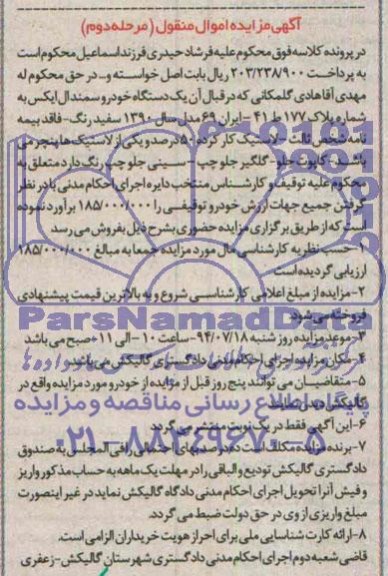 آگهی مزایده اموال منقول (مرحله دوم)
در پرونده کلاسه فوق محکوم علیه فرشاد حیدری فرزند اسماعیل محکوم است
به پرداخت ۲۰۳/۲۳۸/۹۰۰ ریال بابت اصل خواسته و... در حق محکوم له
مهدی آقاهادی گلمکانی که در قبال آن یک دستگاه خودرو سمند ال ایکس به
شماره پلاک ۱۷۷ ط ۴۱ - ایران ۶۹ مدل سال ۱۳۹۰ سفید رنگ - فاقد بیمه
نامه شخص ثالث - لاستیک کار کرده ۵۰ درصد و یکی از لاستیک ها پنچر می
باشد - کاپوت جلو - گلگیر جلو چپ - سینی جلو چپ رنگ دارد متعلق به
محکوم علیه توقیف و کارشناس منتخب دایره اجرای احکام مدنی با در نظر
گرفتن جمیع جهات ارزش خودرو توقیفی را ۱۸۵/۰۰۰/۰۰۰ برآورد نموده
است که از طریق برگزاری مزایده حضوری بشرح ذیل بفروش می رسد
۱- حسب نظریه کارشناسی مال مورد مزایده جمعا به مبلغ ۱۸۵/۰۰۰/۰۰۰
ارزیابی گردیده است
۲- مزایده از مبلغ اعلامی کارشناسی شروع و به بالاترین قیمت پیشنهادی
فروخته می شود
ParsNamadData
۳- موعد مزایده روز شنبه ۹۴/۰۷/۱۸ - ساعت ۱۰ - الی ۱۱ صبح می باشد
۴- مکان مزایده اجرای احکام مدنی دادگستری گالیکش می باشد
۵- متقاضیان می توانند پنج روز قبل از مزایده از خودرو مورد مزایده واقع در
گالیکش دیدن نمایند
پایگاه اطلاع رسانی مناقصه و مزایده
۶- این آگهی فقط در یک نوبت منتشر می گردد
۰۲۱-۸۸۳۴۹۶۷۰-۵
۷- برنده مزایده مکلف است ده درصد بهای احتمالی را فی المجلس به صندوق
دادگستری گالیکش تودیع و الباقی را در مهلت یک ماهه به حساب مذکور واریز
و فیش آنرا تحویل اجرای احکام مدنی دادگاه گالیکش نماید در غیر اینصورت
مبلغ واریزی از وی در حق دولت ضبط می گردد.
۸- ارائه کارت شناسایی ملی برای احراز هویت خریداران الزامی است.
قاضی شعبه دوم اجرای احکام مدنی دادگستری شهرستان گالیکش - زعفری